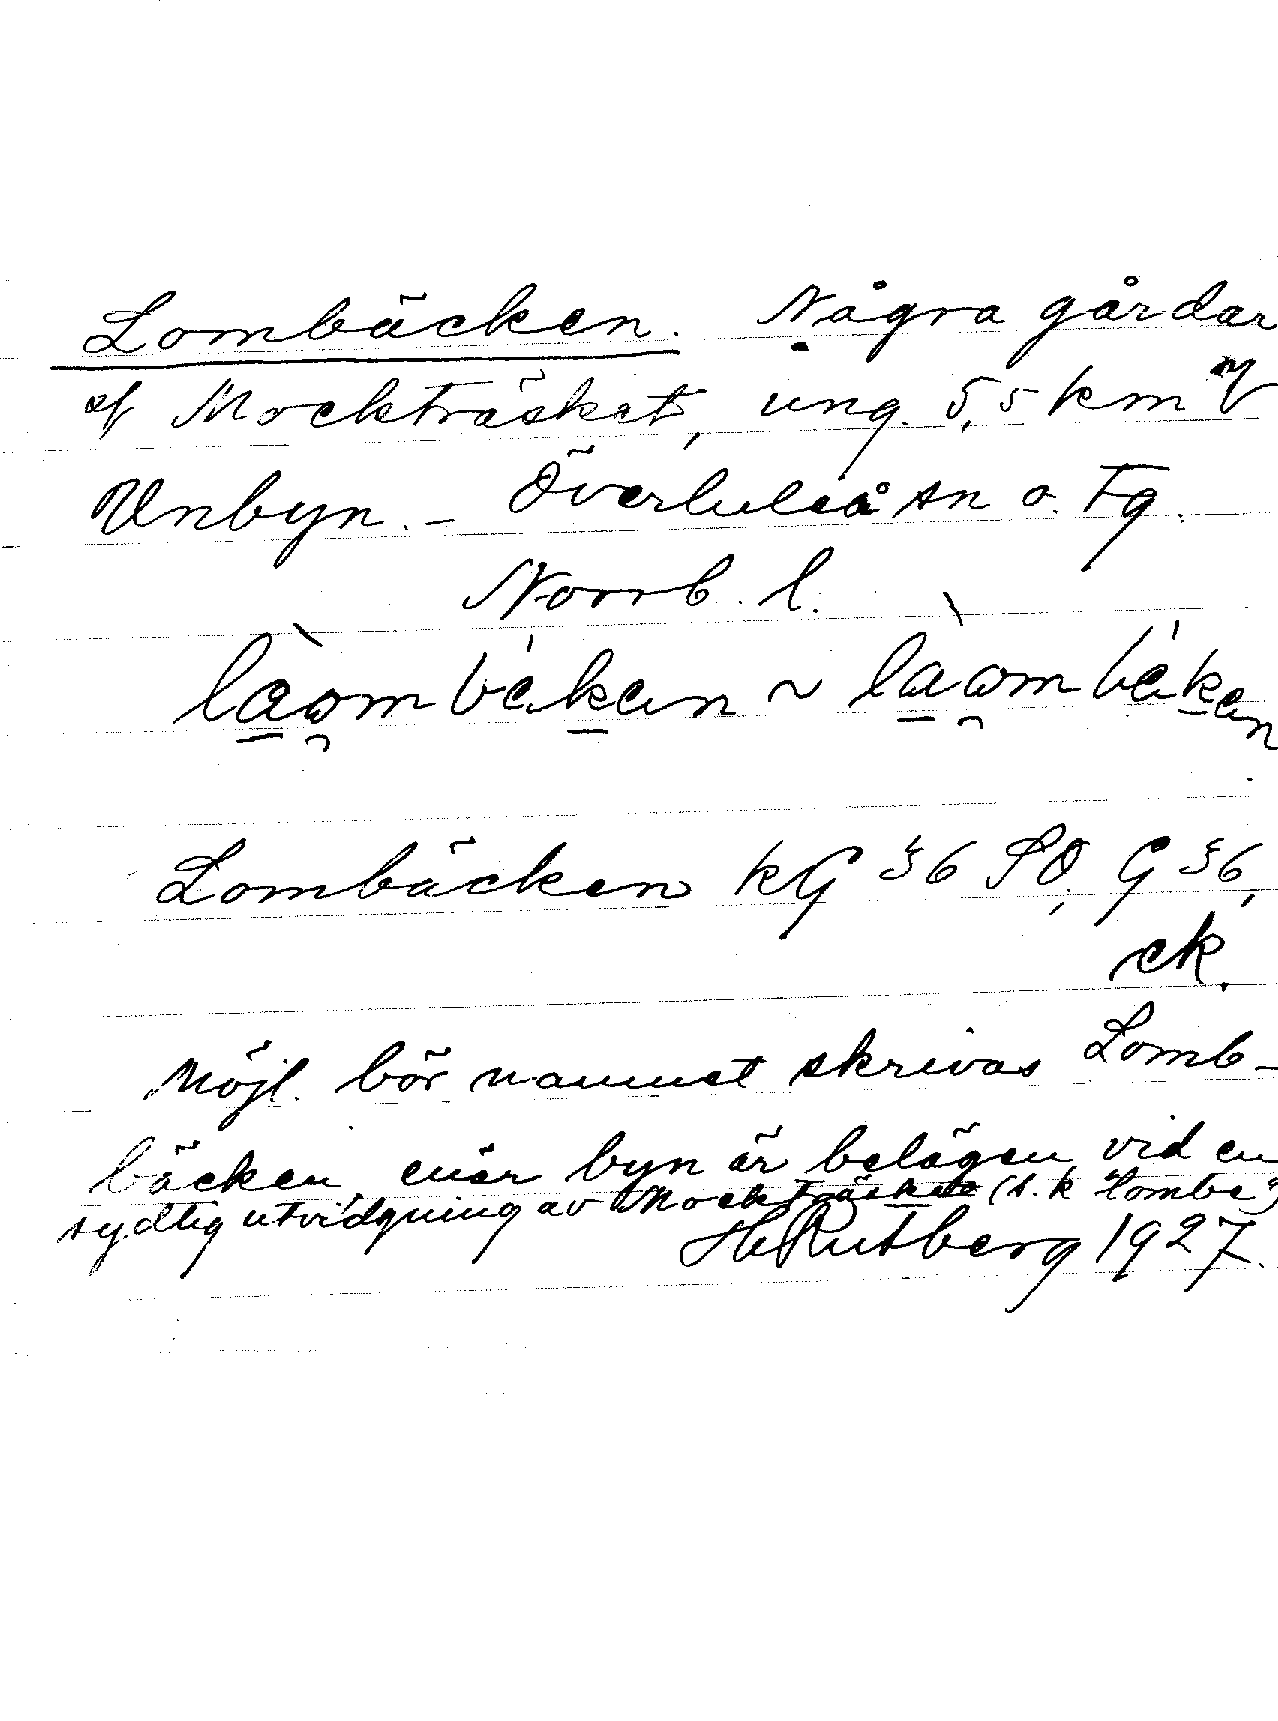 Lombäcken. Några gårdar
sf Mockträsket, ung. 5,5 km nv
Unbyn. – Överluleå sn o. tg.
Norrb. l.
Lombäcken kG 36 SO, G 36,
ek.
Möjl. bör namnet skrivas Lomb-
bäcken, enär byn är belägen vid en
sydlig utvidgning av Mockträsket (s.k "Lombe")
H Rutberg 1927.